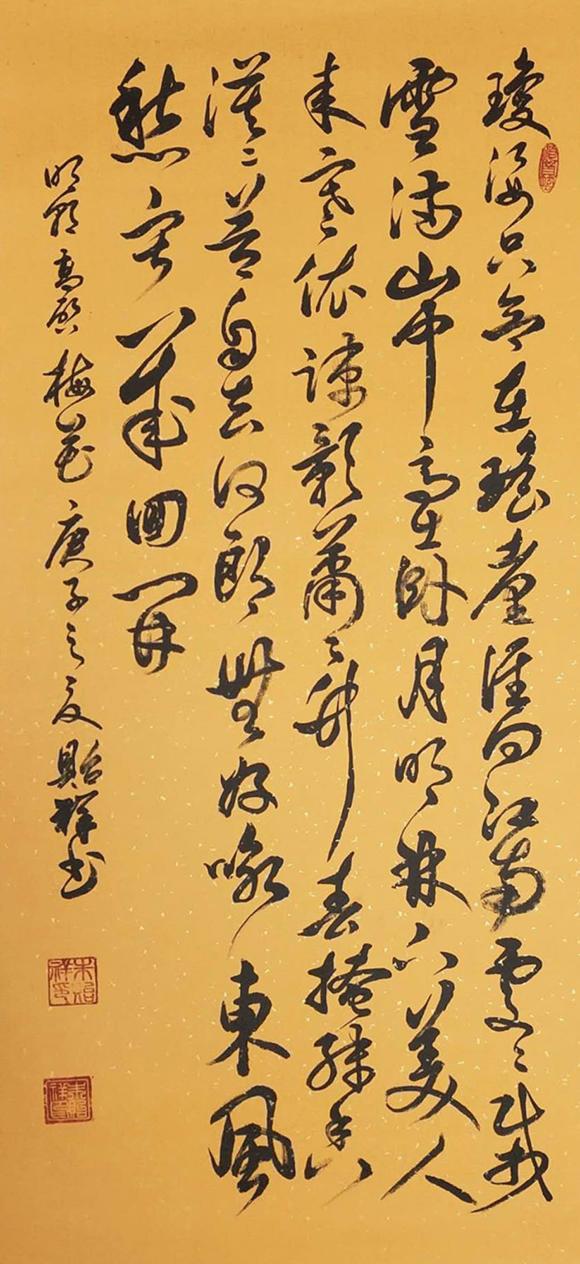 瓊姿只合在瑤臺誰向江南處々栽
雪滿山中高士卧月明林下美人
來寒依疎影蕭々竹春掩殘香
漠々苔自去何郎無好咏東風
愁寂幾回開
明朝高啓梅花庚子之夏貽祥书
朱貽祥印